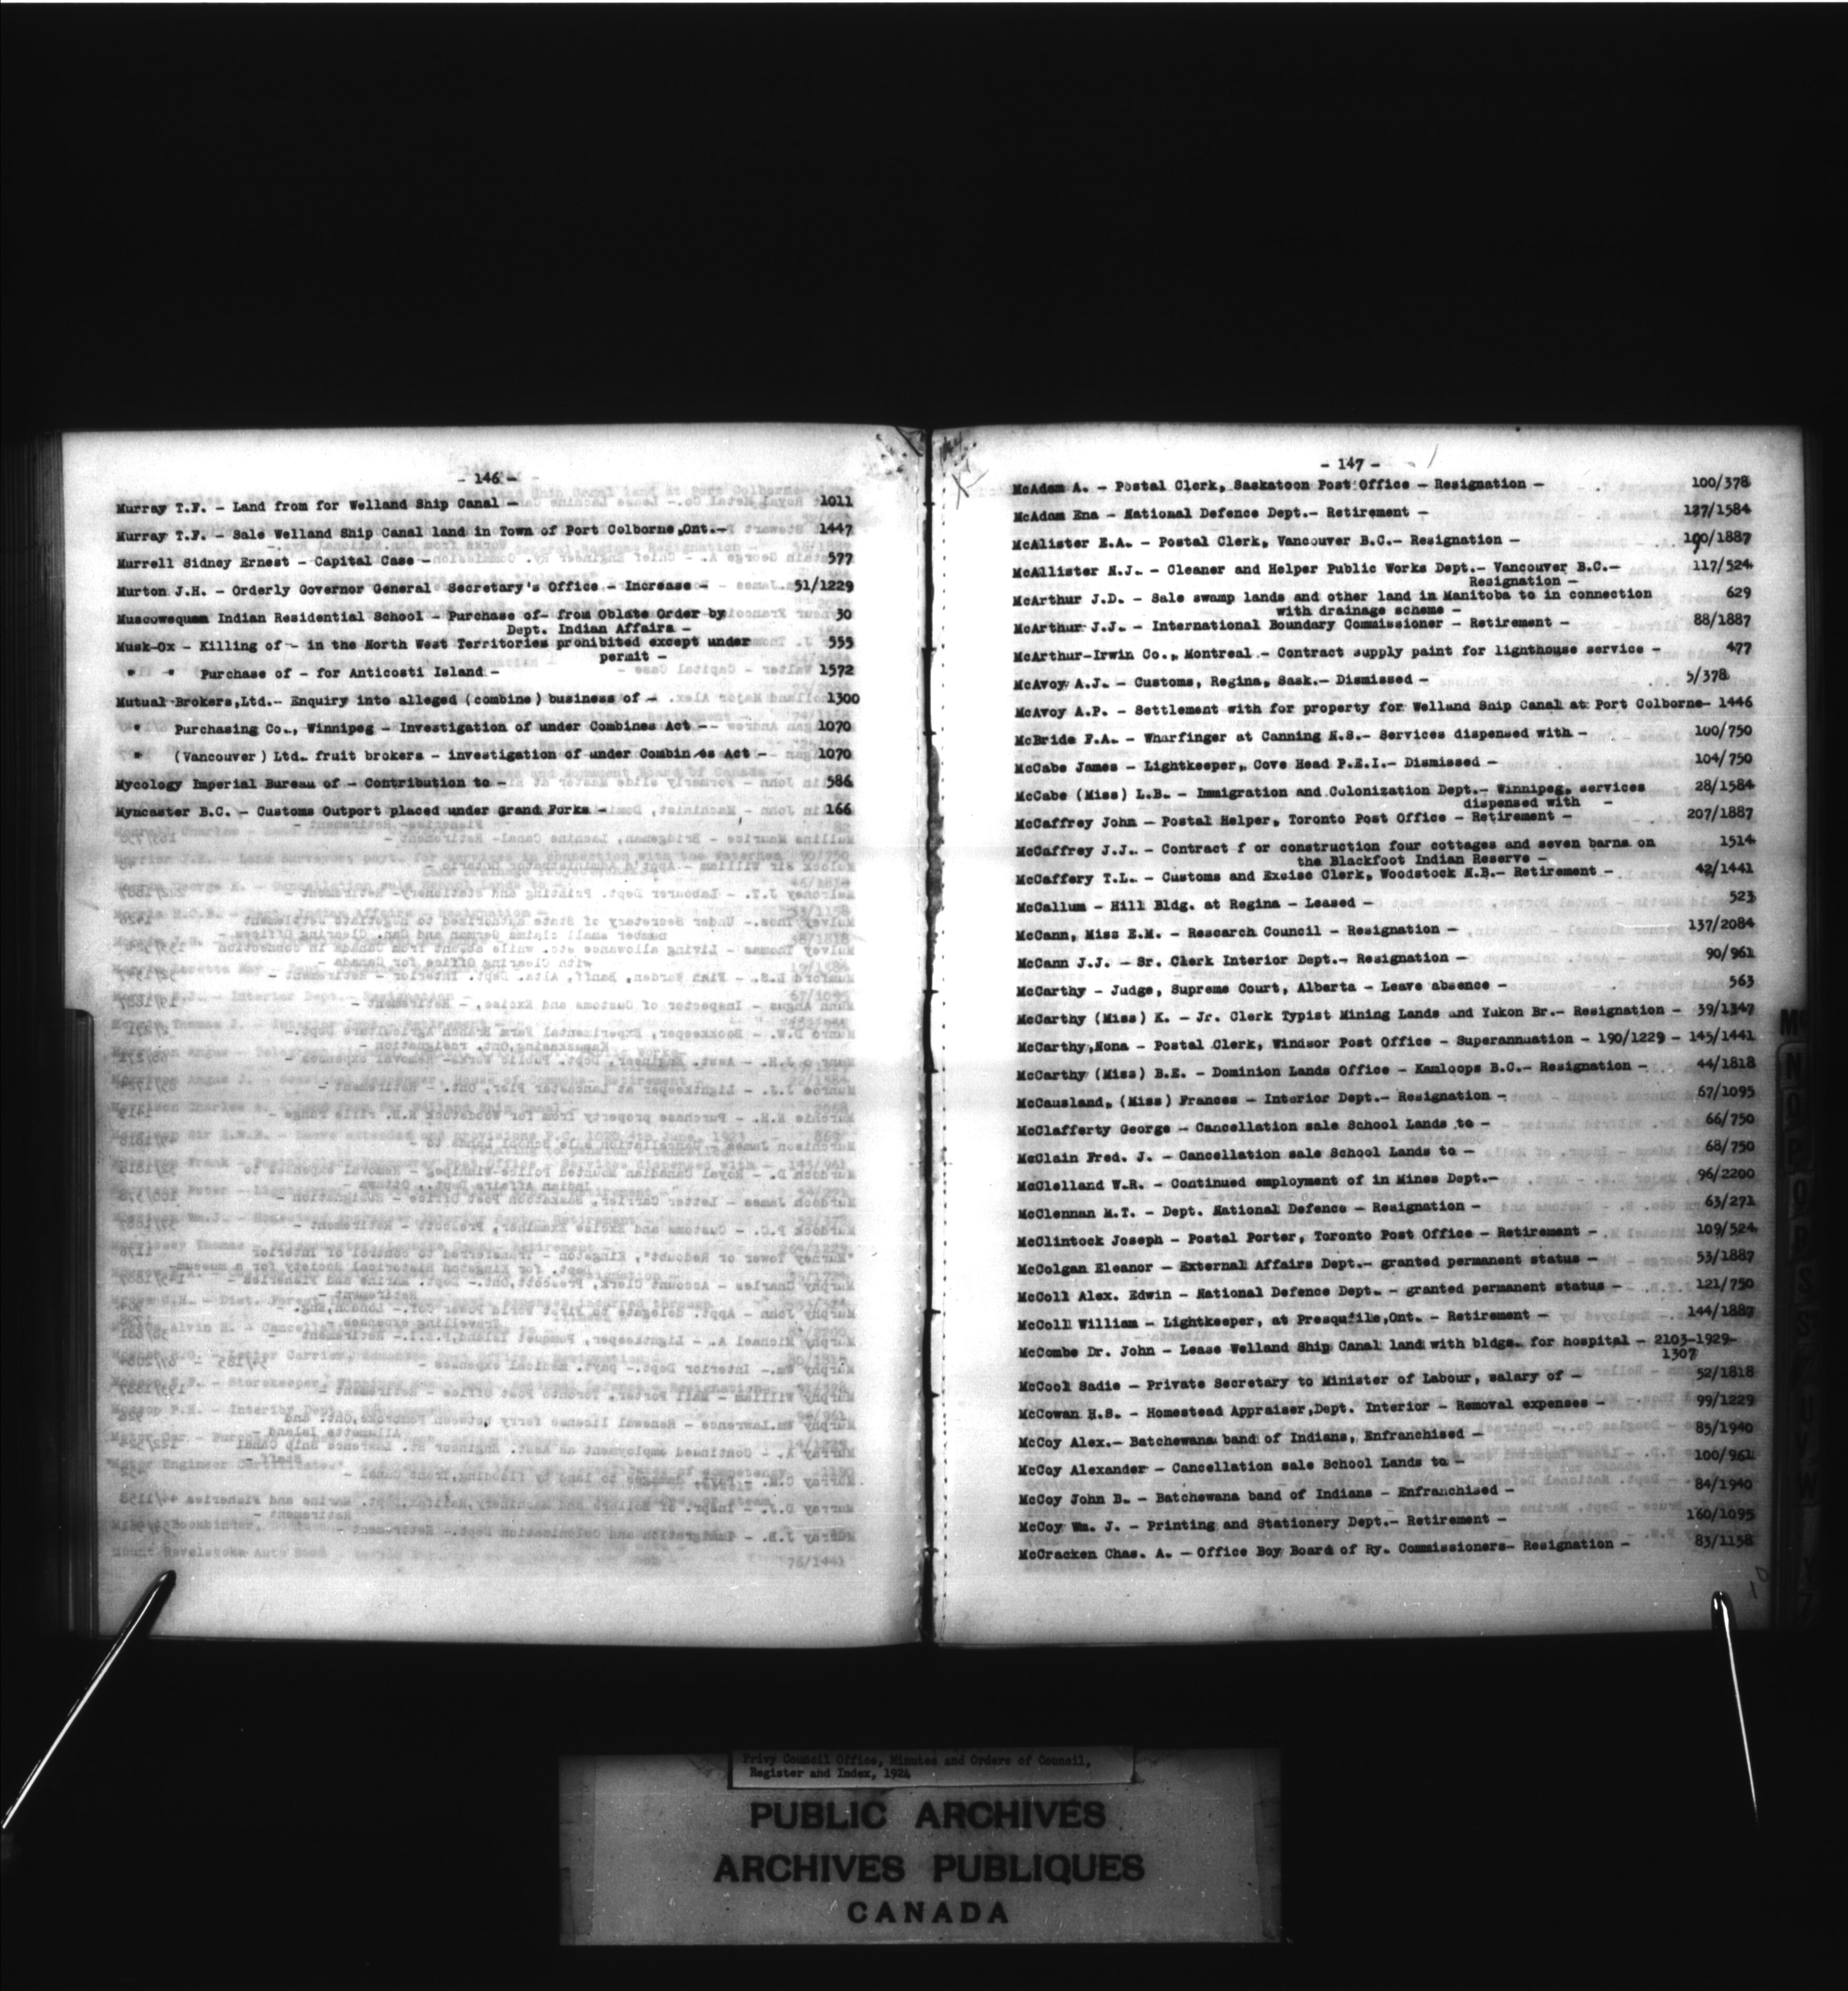 - 146 -
Murray T.F. - Land from for Welland Ship Canal - 1011
Murray T.F. - Sale Welland Ship Canal land in Town of Port Colborne,Ont.- 1447
Murrell Sidney Ernest - Capital Case - 577
Murton J.H. - Orderly Governor General Secretary's Office - Increase - 51/1229
Muscowequam Indian Residential School - Purchase of- from Oblate Order by 30
Dept. Indian Affairs -
Musk-Ox - Killing of - in the North West Territories prohibited except under 555
permit -
" " Purchase of - for Anticosti Island - 1572
Mutual Brokers,Ltd.- Enquiry into alleged (combine) business of - 1300
" Purchasing Co., Winnipeg - Investigation of under Combines Act - 1070
" (Vancouver) Ltd. fruit brokers - investigation of under Combin es Act - 1070
Mycology Imperial Bureau of - Contribution to - 586
Myncaster B.C. - Customs Outport placed under Grand Forks - 166
- 147 -
McAdam A. - Postal Clerk, Saskatoon Post Office - Resignation - 100/378
McAdam Ena - National Defence Dept.- Retirement - 127/1584
McAlister E.A. - Postal Clerk, Vancouver B.C.- Resignation - 190/1887
McAllister N.J. - Cleaner and Helper Public Works Dept.- Vancouver B.C.- 117/524
Resignation -
McArthur J.D. - Sale swamp lands and other land in Manitoba to in connection 629
with drainage scheme -
McArthur J.J. - International Boundary Commissioner - Retirement - 88/1887
McArthur-Irwin Co., Montreal - Contract supply paint for lighthouse service - 477
McAvoy A.J. - Customs, Regina, Sask.- Dismissed - 5/378
McAvoy A.P. - Settlement with for property for Welland Ship Canal at Port Colborne- 1446
McBride F.A. - Wharfinger at Canning N.S.- Services dispensed with - 100/750
McCabe James - Lightkeeper, Cove Head P.E.I.- Dismissed - 104/750
McCabe (Miss) L.B. - Immigration and Colonization Dept.- Winnipeg, services 28/1584
dispensed with -
McCaffrey John - Postal Helper, Toronto Post Office - Retirement - 207/1887
McCaffrey J.J. - Contract f or construction four cottages and seven barns on 1514
the Blackfoot Indian Reserve -
McCaffery T.L. - Customs and Excise Clerk, Woodstock N.B.- Retirement - 42/1441
McCallum - Hill Bldg. at Regina - Leased - 523
McCann, Miss E.M. - Research Council - Resignation - 137/2084
McCann J.J. - Sr. Clerk Interior Dept.- Resignation - 90/961
McCarthy - Judge, Supreme Court, Alberta - Leave absence - 563
McCarthy (Miss) K. - Jr. Clerk Typist Mining Lands and Yukon Br.- Resignation - 39/1347
McCarthy,Nona - Postal Clerk, Windsor Post Office - Superannuation - 190/1229 - 145/1441
McCarthy (Miss) B.E. - Dominion Lands Office - Kamloops B.C.- Resignation - 44/1818
McCausland, (Miss) Frances - Interior Dept.- Resignation - 67/1095
McClafferty George - Cancellation sale School Lands to - 66/750
McClain Fred. J. - Cancellation sale School Lands to - 68/750
McClelland W.R. - Continued employment of in Mines Dept.- 96/2200
McClennan M.T. - Dept. National Defence - Resignation - 63/271
McClintock Joseph - Postal Porter, Toronto Post Office - Retirement - 109/524
McColgan Eleanor - External Affairs Dept.- granted permanent status - 53/1887
McColl Alex. Edwin - National Defence Dept. - granted permanent status - 121/750
McColl William - Lightkeeper, at Presquille,Ont. - Retirement - 144/1887
McCombe Dr. John - Lease Welland Ship Canal land with bldgs. for hospital - 2103-1929-
1307
McCool Sadie - Private Secretary to Minister of Labour, salary of - 52/1818
McCowan H.S. - Homestead Appraiser,Dept. Interior - Removal expenses - 99/1229
McCoy Alex.- Batchewana band of Indians, Enfranchised - 85/1940
McCoy Alexander - Cancellation sale School Lands to - 100/961
McCoy John B. - Batchewana band of Indians - Enfranchised - 84/1940
McCoy Wm. J. - Printing and Stationery Dept.- Retirement - 160/1095
McCracken Chas. A. - Office Boy Board of Ry. Commissioners- Resignation - 83/1158
Privy Council Office, Minutes and Orders of Council,
Register and Index, 1924
PUBLIC ARCHIVES
ARCHIVES PUBLIQUES
CANADA